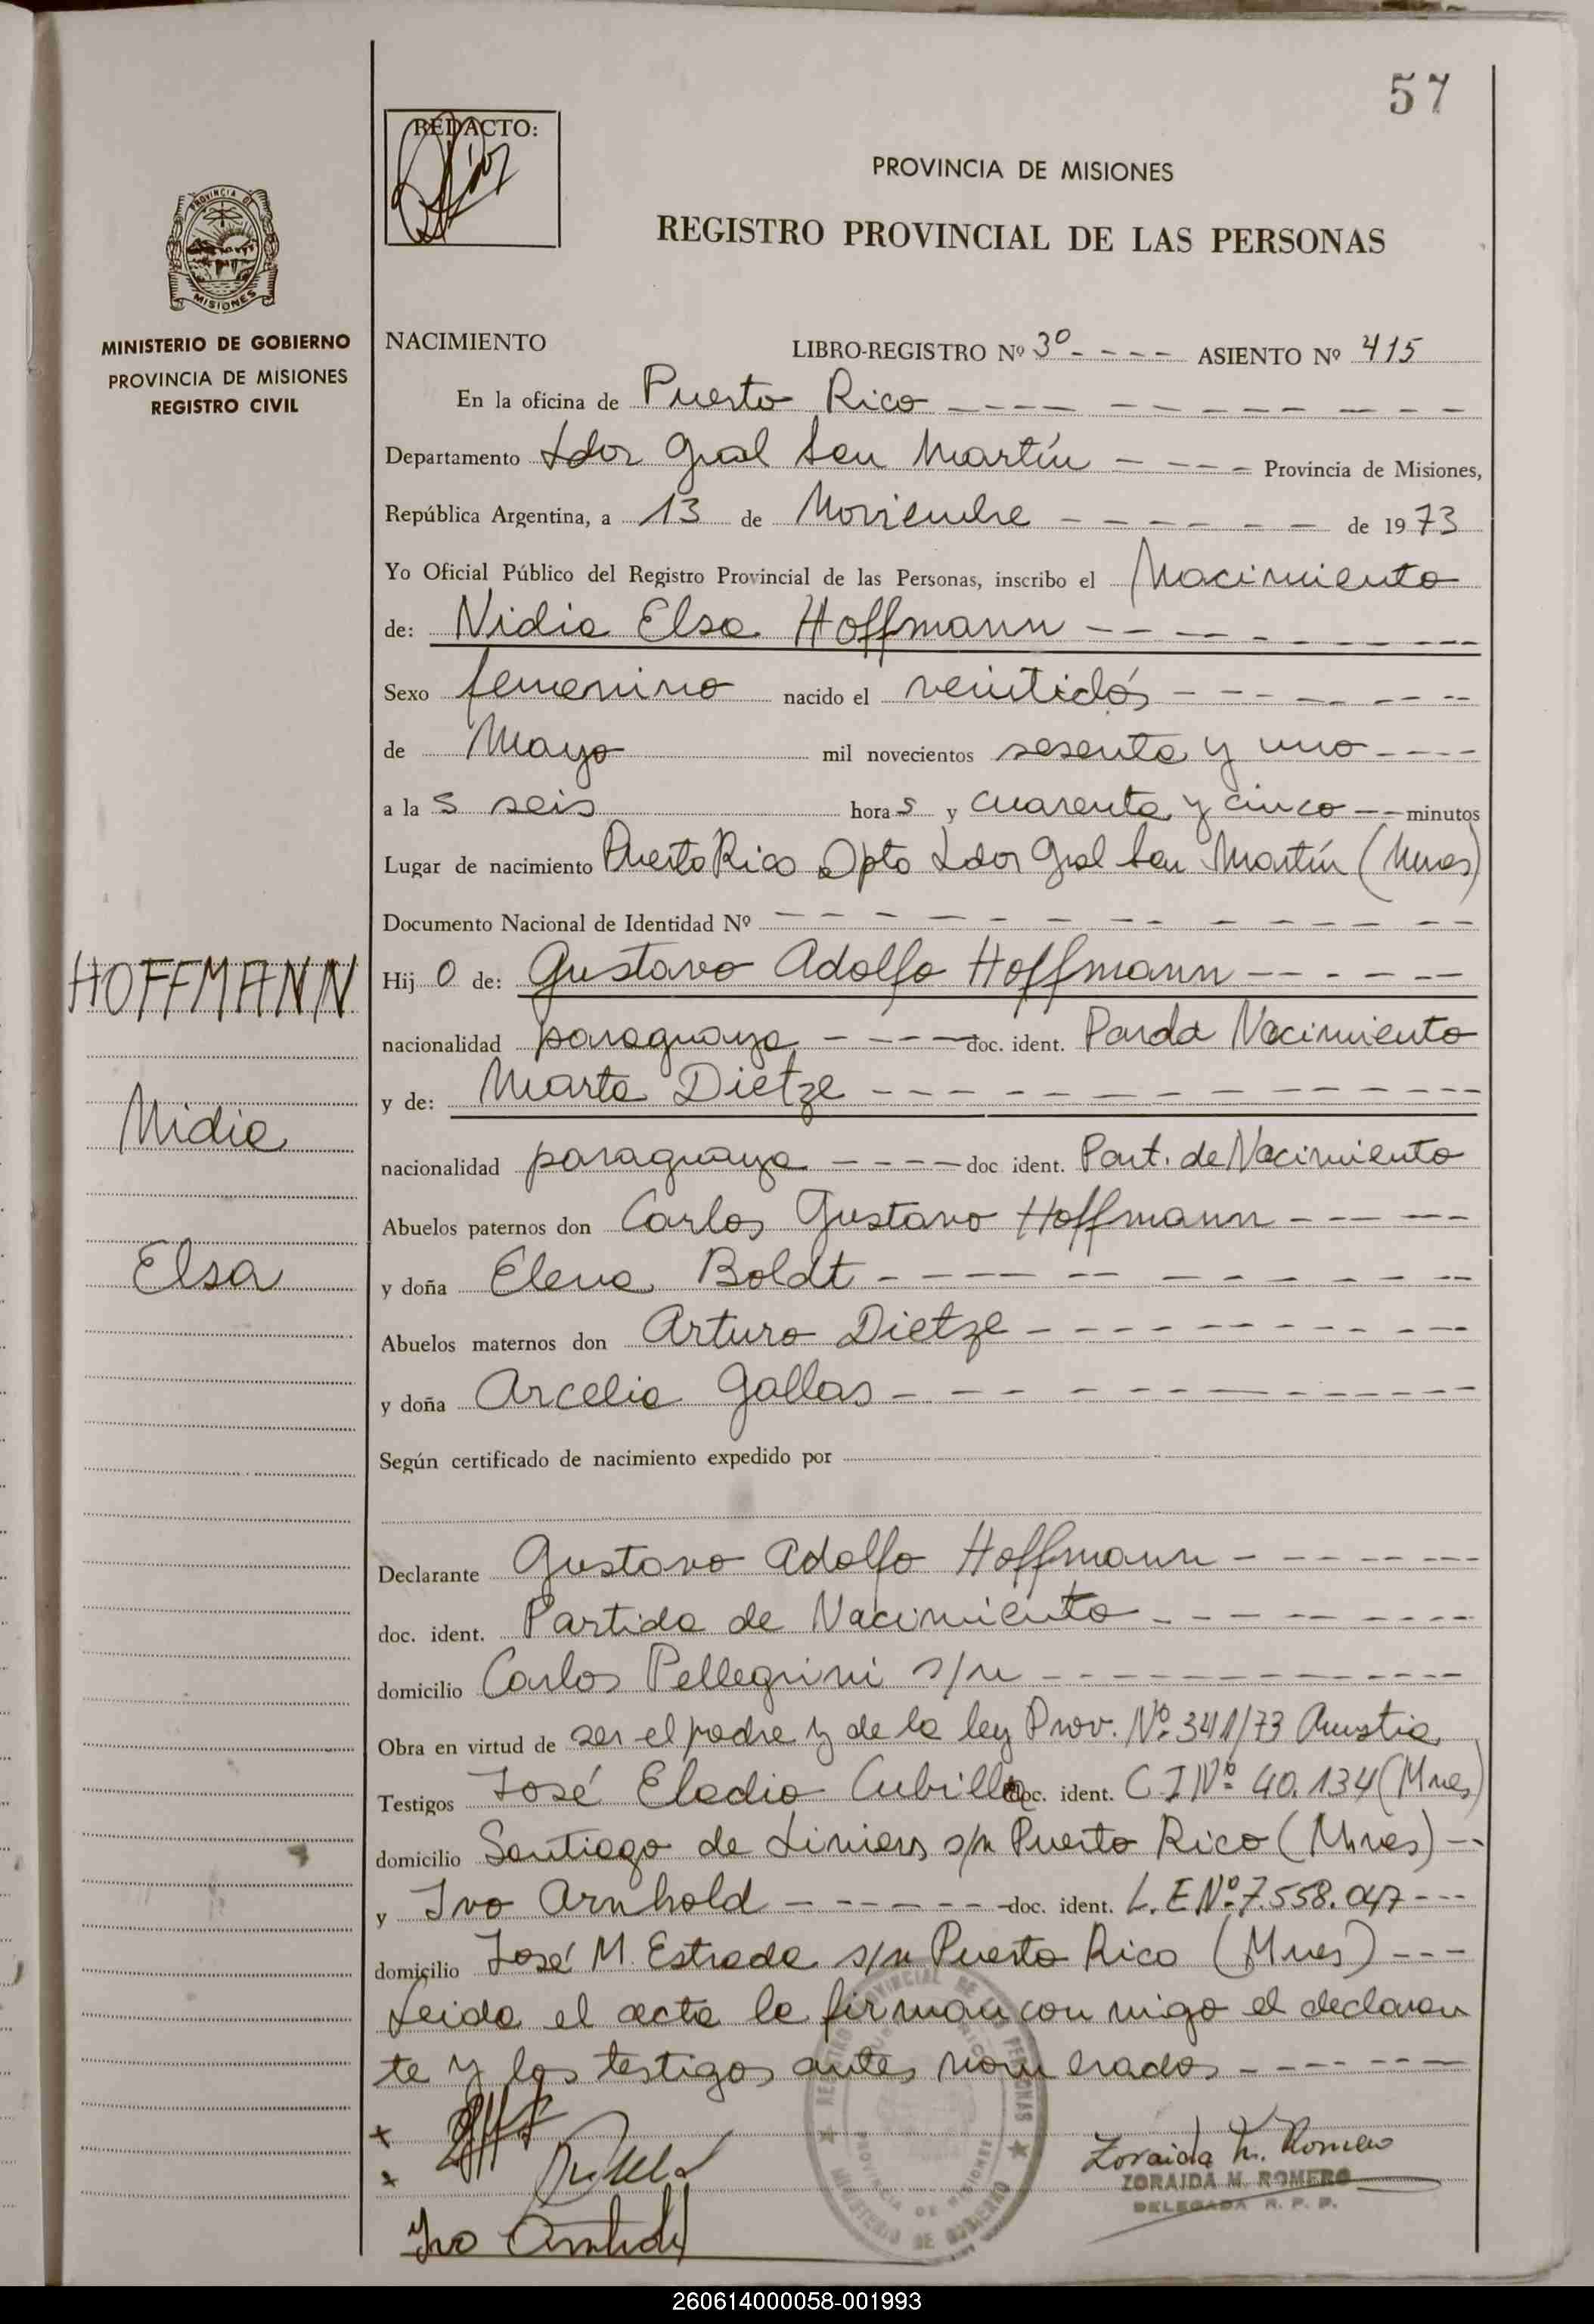 57
REDACTO:
PROVINCIA DE MISIONES
REGISTRO PROVINCIAL DE LAS PERSONAS
PROVINCIA DE
MISIONES
MINISTERIO DE GOBIERNO
PROVINCIA DE MISIONES
REGISTRO CIVIL
NACIMIENTO LIBRO-REGISTRO Nº 3º - - - - ASIENTO Nº 415
En la oficina de Puerto Rico
Departamento Ldor Gral San Martín - - - - Provincia de Misiones,
República Argentina, a 13 de Noviembre - - - - - - de 1973
Yo Oficial Público del Registro Provincial de las Personas, inscribo el Nacimiento
de: Nidia Elsa Hoffmann
Sexo femenino nacido el veintidós
de Mayo mil novecientos sesenta y uno
a la s seis hora s y cuarenta y cinco minutos
Lugar de nacimiento Puerto Rico Dpto Ldor Gral San Martín (Mnes)
Documento Nacional de Identidad Nº
HOFFMANN
Hij o de: Gustavo Adolfo Hoffmann
nacionalidad paraguaya - - - - doc. ident. Parda Nacimiento
y de: Marta Dietze
Nidia
nacionalidad paraguaya - - - - doc ident. Part. de Nacimiento
Abuelos paternos don Carlos Gustavo Hoffmann
Elsa
y doña Elena Boldt
Abuelos maternos don Arturo Dietze
y doña Arcelia Gallas
Según certificado de nacimiento expedido por
Declarante Gustavo Adolfo Hoffmann
doc. ident. Partida de Nacimiento
domicilio Carlos Pellegrini s/n
Obra en virtud de ser el padre y de la ley Prov. Nº 341/73 Amstia
Testigos José Eladio Cubilla doc. ident. C I Nº 40.134 (Mnes)
domicilio Santiago de Liniers s/n Puerto Rico (Mnes)
y Ivo Arnhold - - - - - - doc. ident. L. E Nº 7.558.047
domicilio José M. Estrada s/n Puerto Rico (Mnes)
Leida el acta la firman con migo el declaran
te y los testigos antes nombrados
REGISTRO PROVINCIAL DE LAS PERSONAS
PROVINCIA DE MISIONES
MINISTERIO DE GOBIERNO
Zoraida M. Romero
ZORAIDA M. ROMERO
DELEGADA R. P. P.
Ivo Arnhold
260614000058-001993